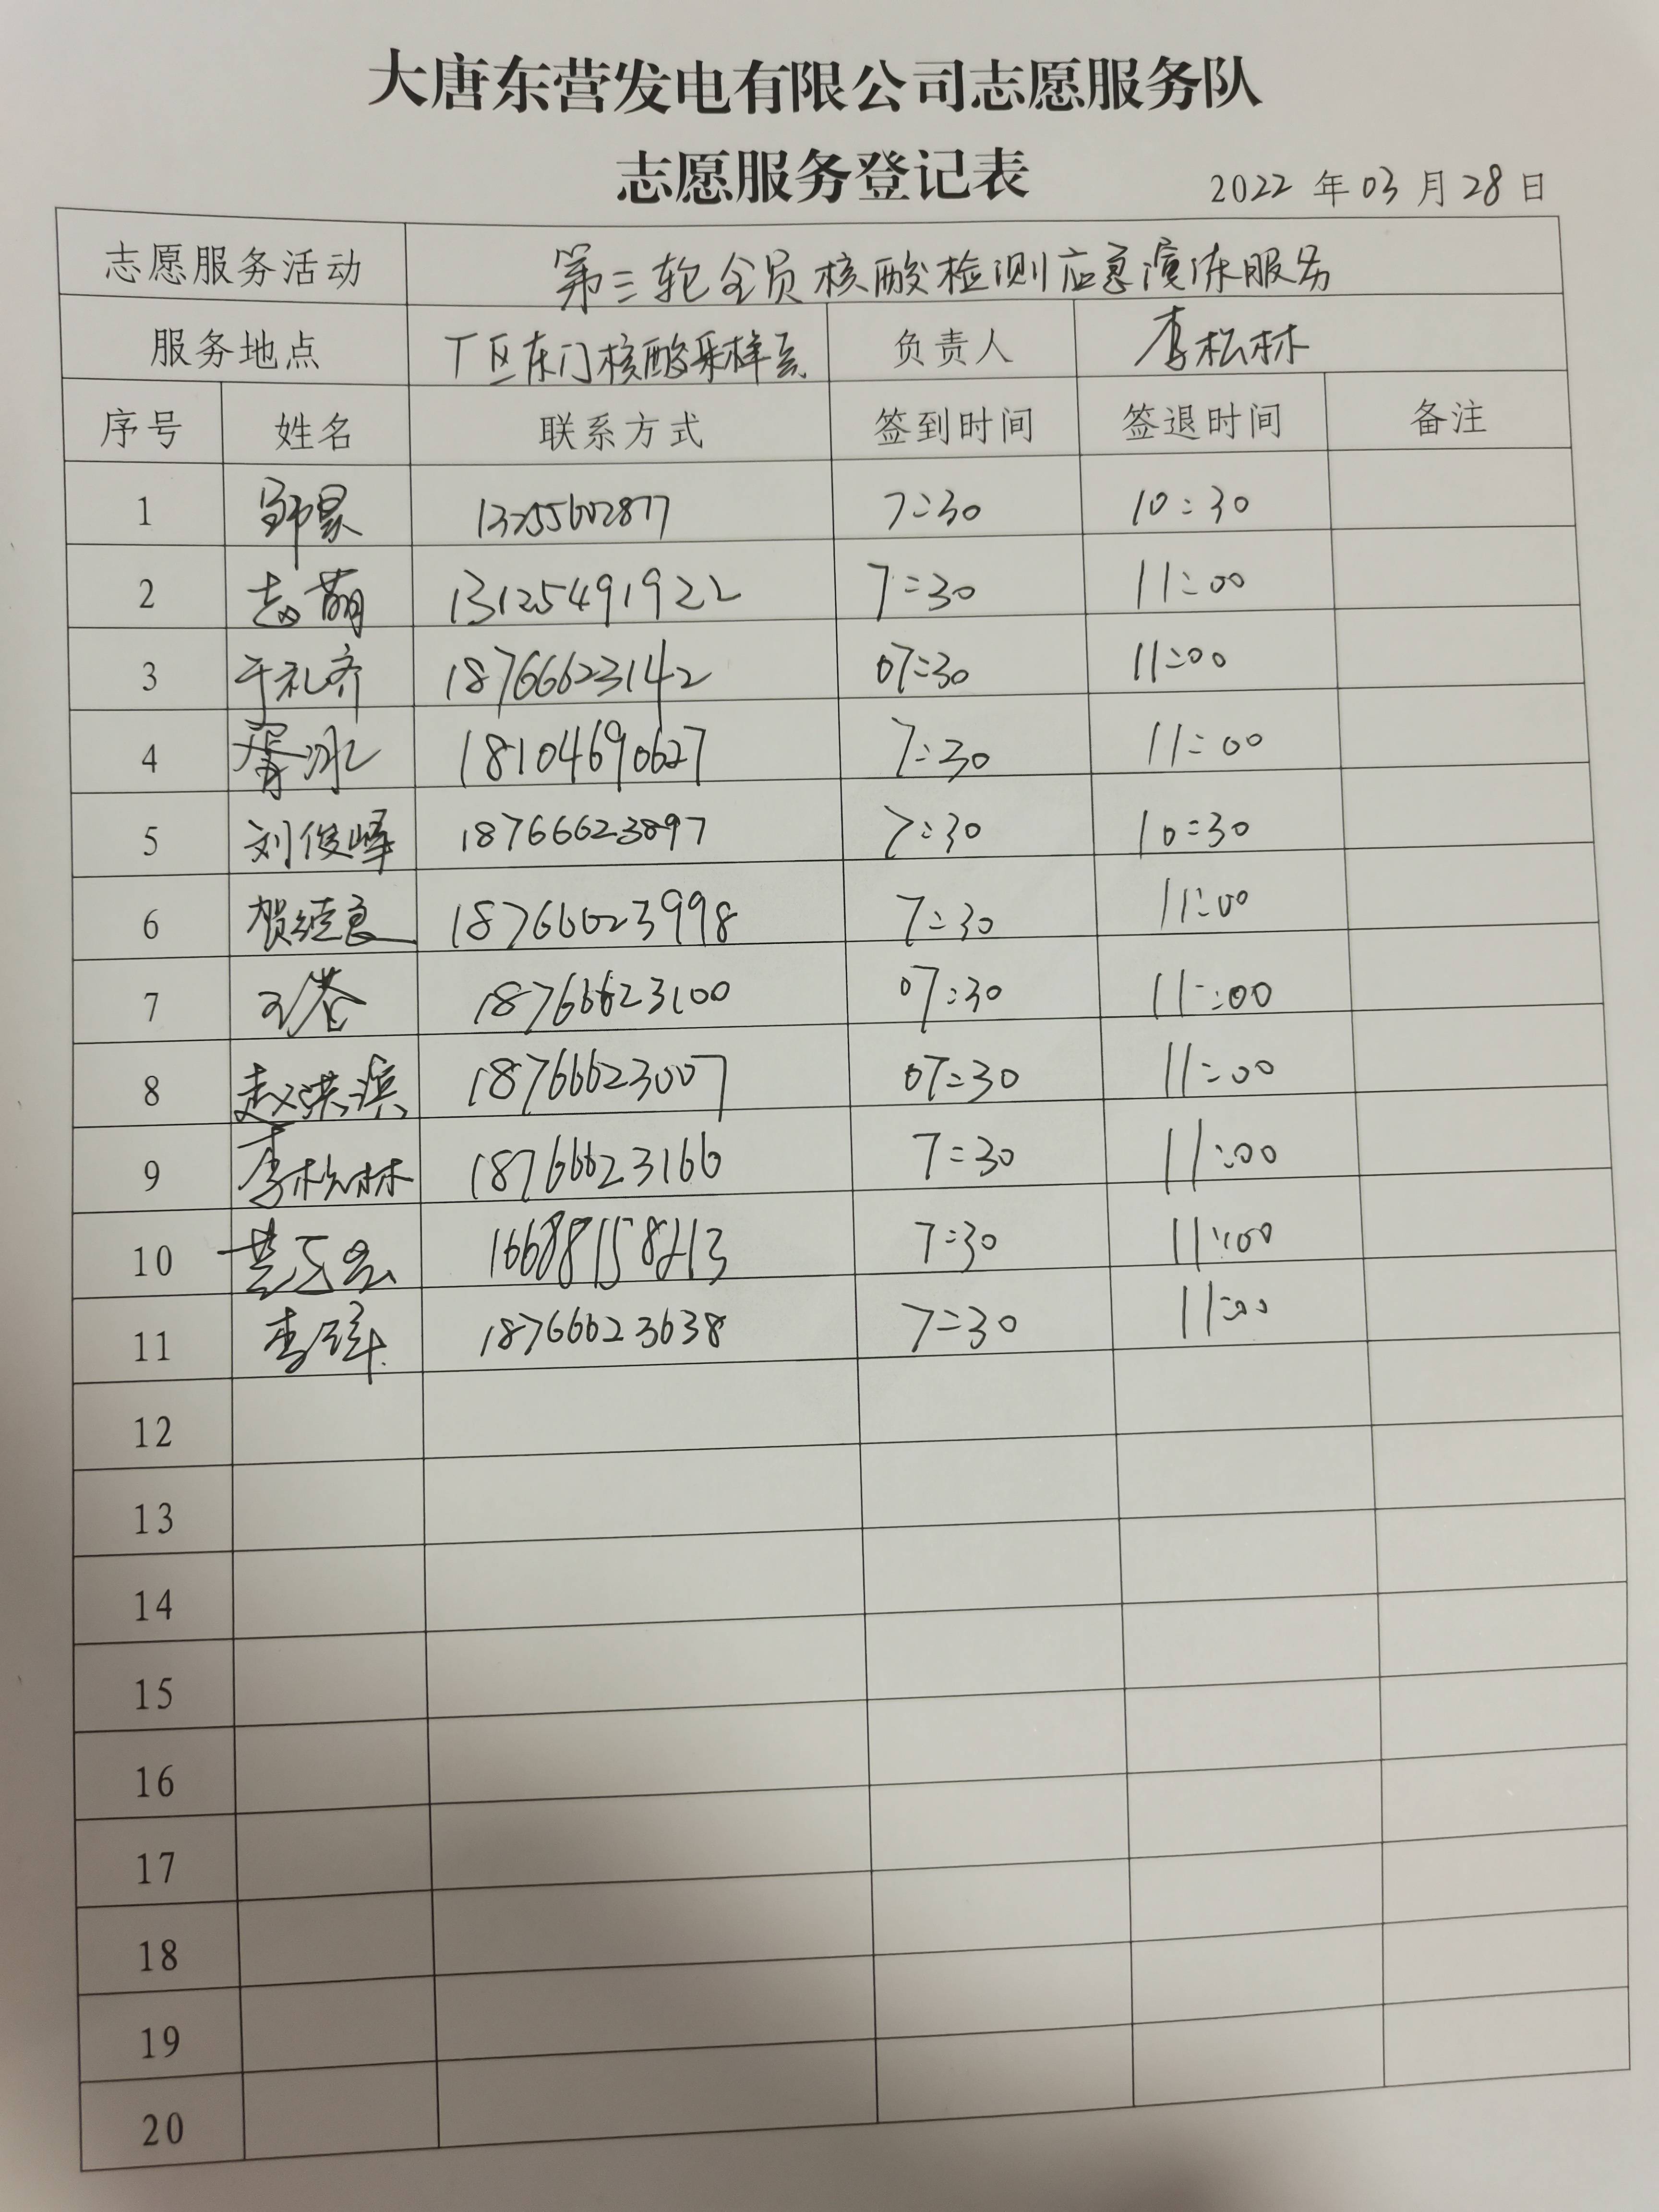 大唐东营发电有限公司志愿服务队
志愿服务登记表
2022 年 03 月 28 日
志愿服务活动 第三轮全员核酸检测应急演练服务
服务地点 厂区东门核酸采样点 负责人 李松林
序号 姓名 联系方式 签到时间 签退时间 备注
1 13255602877 7:30 10:30
2 赵萌 13125491922 7:30 11:00
3 于礼齐 18766623142 07:30 11:00
4 胥冰 18104690627 7:30 11:00
5 刘俊峰 18766623897 7:30 10:30
6 贺经良 18766623998 7:30 11:00
7 18766623100 07:30 11:00
8 赵洪滨 18766623007 07:30 11:00
9 李松林 18766623166 7:30 11:00
10 16688158213 7:30 11:00
11 18766623638 7:30 11:00
12
13
14
15
16
17
18
19
20